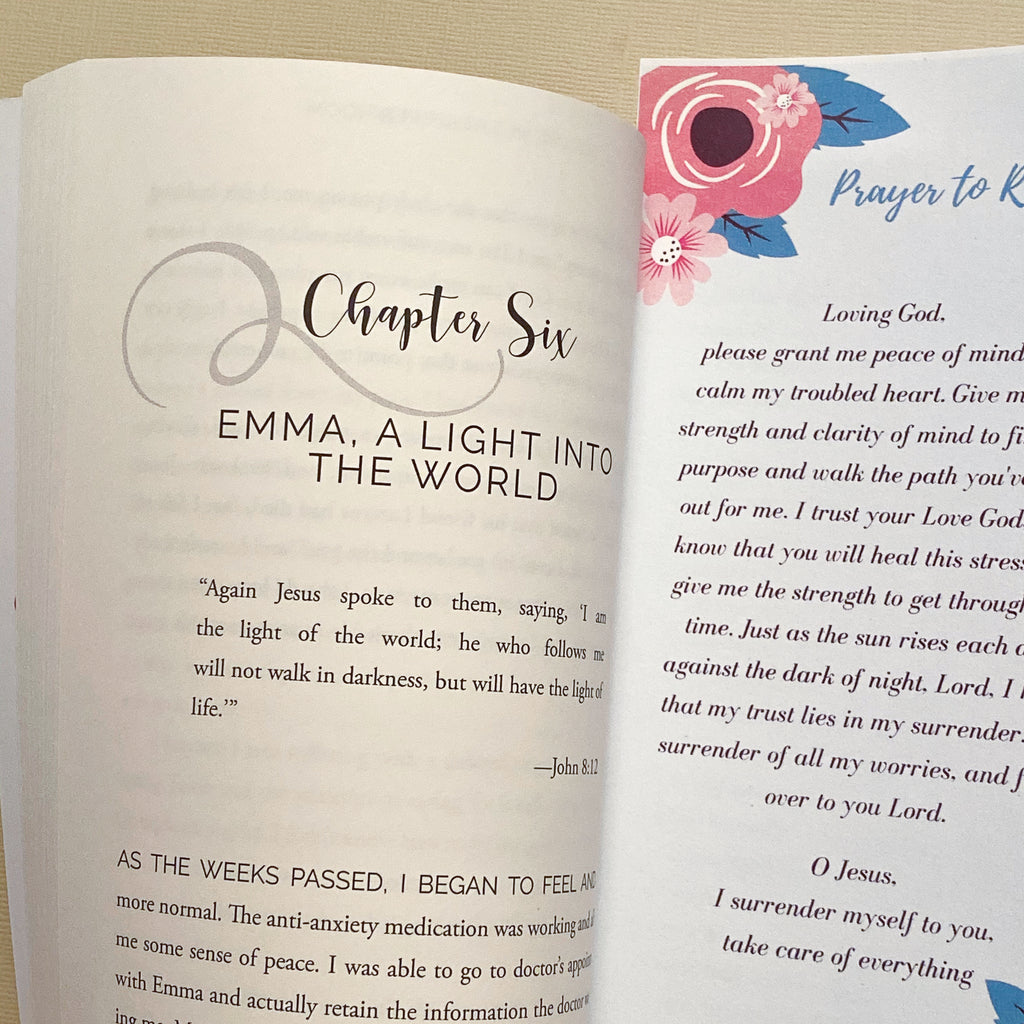 Chapter Six
EMMA, A LIGHT INTO
THE WORLD
“Again Jesus spoke to them, saying, ‘I am
the light of the world; he who follows me
will not walk in darkness, but will have the light of
life.’”
—John 8:12
AS THE WEEKS PASSED, I BEGAN TO FEEL AND
more normal. The anti-anxiety medication was working and
me some sense of peace. I was able to go to doctor’s
with Emma and actually retain the information the doctor
Prayer to
Loving God,
please grant me peace of mind
calm my troubled heart. Give
strength and clarity of mind to
purpose and walk the path you've
out for me. I trust your Love God,
know that you will heal this stress
give me the strength to get through
time. Just as the sun rises each
against the dark of night, Lord, I
that my trust lies in my surrender.
surrender of all my worries, and
over to you Lord.
O Jesus,
I surrender myself to you,
take care of everything